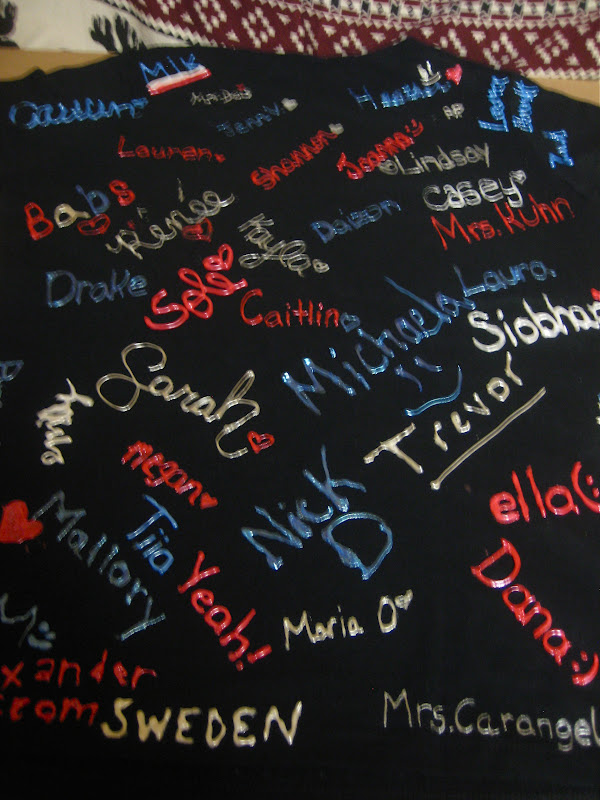 Mik
Caitlin
Jenny
Lauren
Shannon
Joanna:)
Lindsay
AP
Casey
Mrs. Kuhn
Babs
Renée
Kayla
Drake
Sofi
Caitlin
Michaela
Laura
Siobhan
Sarah
Trevor
megan
Nick
D
ella(:
Mallory
Tiia
Yeah!
Maria O
Dana:)
xander
from SWEDEN
Mrs. Carangel